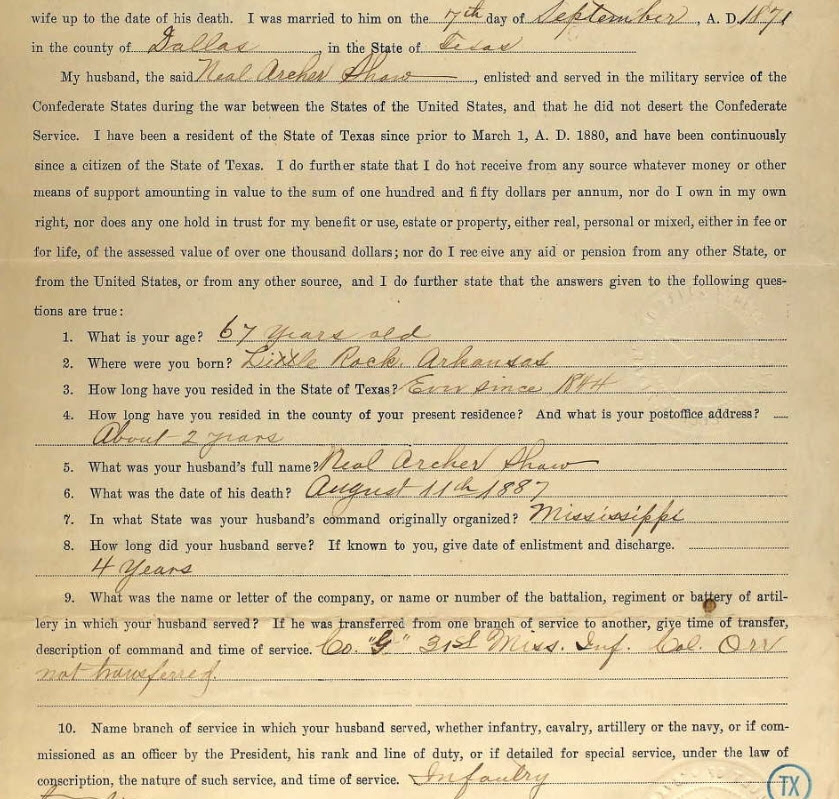 wife up to the date of his death. I was married to him on the 7th day of September, A. D. 1871
in the county of Dallas, in the State of Texas
My husband, the said Neal Archer Shaw, enlisted and served in the military service of the
Confederate States during the war between the States of the United States, and that he did not desert the Confederate
Service. I have been a resident of the State of Texas since prior to March 1, A. D. 1880, and have been continuously
since a citizen of the State of Texas. I do further state that I do not receive from any source whatever money or other
means of support amounting in value to the sum of one hundred and fifty dollars per annum, nor do I own in my own
right, nor does any one hold in trust for my benefit or use, estate or property, either real, personal or mixed, either in fee or
for life, of the assessed value of over one thousand dollars; nor do I receive any aid or pension from any other State, or
from the United States, or from any other source, and I do further state that the answers given to the following ques-
tions are true:
1. What is your age? 67 years old
2. Where were you born? Little Rock. Arkansas
3. How long have you resided in the State of Texas? Ever since 1844
4. How long have you resided in the county of your present residence? And what is your postoffice address?
About 2 years
5. What was your husband's full name? Neal Archer Shaw
6. What was the date of his death? August 11th 1887
7. In what State was your husband's command originally organized? Mississippi
8. How long did your husband serve? If known to you, give date of enlistment and discharge.
4 Years
9. What was the name or letter of the company, or name or number of the battalion, regiment or battery of artil-
lery in which your husband served? If he was transferred from one branch of service to another, give time of transfer,
description of command and time of service. Co. "G" 31st Miss. Inf. Col. Orr
not transferred.
10. Name branch of service in which your husband served, whether infantry, cavalry, artillery or the navy, or if com-
missioned as an officer by the President, his rank and line of duty, or if detailed for special service, under the law of
conscription, the nature of such service, and time of service. Infantry
TX